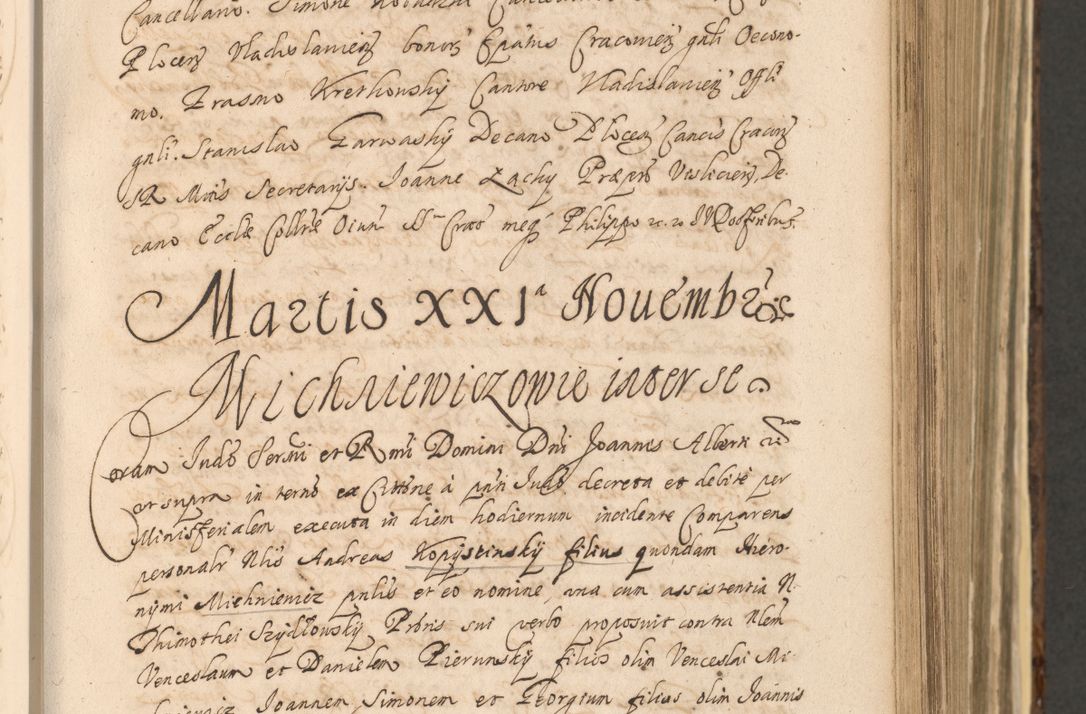 Cancellario. Simone
Plocen Vladislavien bonor Epatus Cracovien gnli Oecono-
mo. Erasmo Kretkowsky Cantore Vladislavien Offli
gnli. Stanislao Garwasky Decano Plocen Cancis Cracov
SR Mtis Secretarijs. Joanne Zachy Præpto Visliciens, De-
cano Eccliæ Collte Oium SSr Crac meq Philippo
Martis XXIa Novembris
Michniewiczowie inter se
Coram Judo Sermi et Rmi Domini Dni Joannis Alberti
ut supra in termo ex Cittone à pnti Judo decreta et debitè per
Ministerialem executa in diem hodiernum incidente Comparens
personalr Nlis Andreas Kopystinsky filius quondam Hiero-
nymi Michniewicz pnlis et eo nomine, una cum assistentia N.
Thimothei Szydlowsky Pròris sui verbo proposuit contra Nlem
Venceslaum et Danielem Pierunsky filios olim Venceslai Mi-
chniewicz Joannem Simonem et Georgium filios olim Joannis